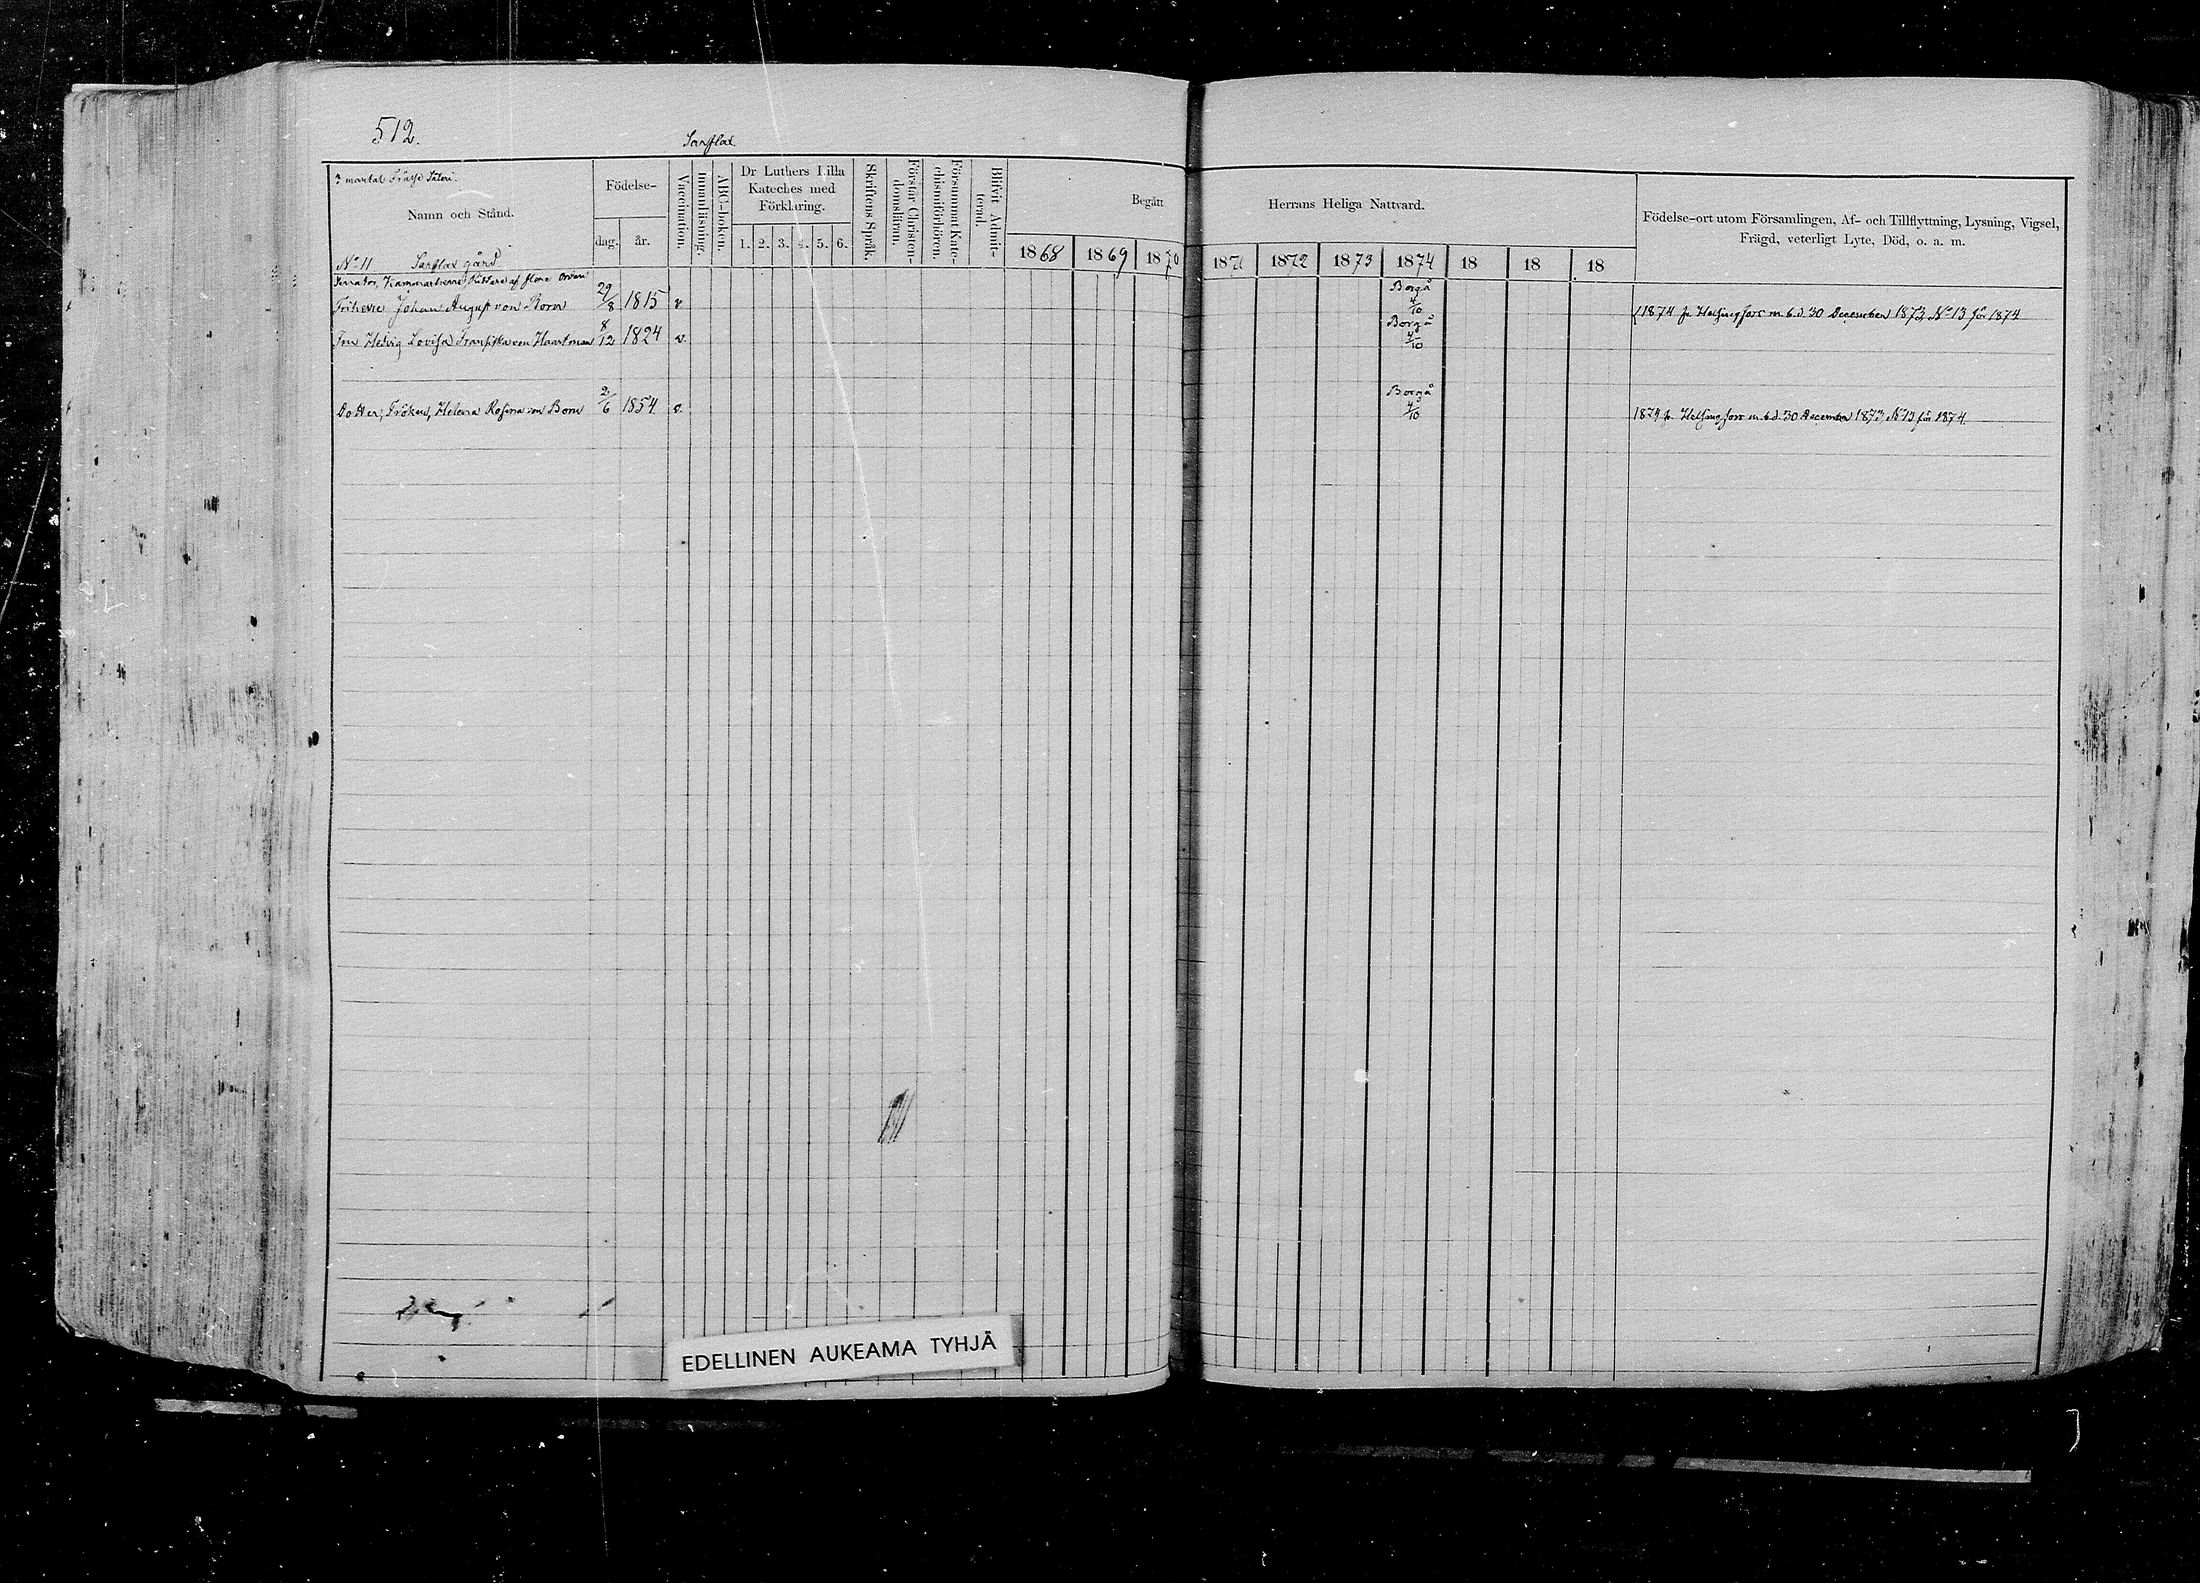 512.
Sarflax
3 mantal Frälse Säteri.
Namn och Stånd.
Födelse-
dag.
år.
Vaccination.
Innanläsning.
ABC-boken.
Dr Luthers Lilla
Kateches med
Förklaring.
1. 2. 3. 4. 5. 6.
Skriftens Språk.
Förstår Christen-
domsläran.
Försummat Kate-
chismiförhören.
Blifvit Admit-
terad.
Begått
Herrans Heliga Nattvard.
1868 1869 1870 1871 1872 1873 1874 18 18 18
Födelse-ort utom Församlingen, Af- och Tillflyttning, Lysning, Vigsel,
Frägd, veterligt Lyte, Död, o. a. m.
No 11 Sarflax gård
Senator, Kammarherre Riddare af flere Orden
Friherre Johan August von Born 29/8 1815 v Borgå 4/10 1874 fr Helsingfors m. b. d. 30 December 1873 No 13 för 1874
Fru Hedvig Lovisa Fransiska von Haartman 8/12 1824 v. Borgå 4/10
Dotter, Fröken, Helena Rosina von Born 2/6 1854 v. Borgå 4/10 1874 fr Helsingfors m. b. d. 30 December 1873 No 13 för 1874.
EDELLINEN AUKEAMA TYHJÄ